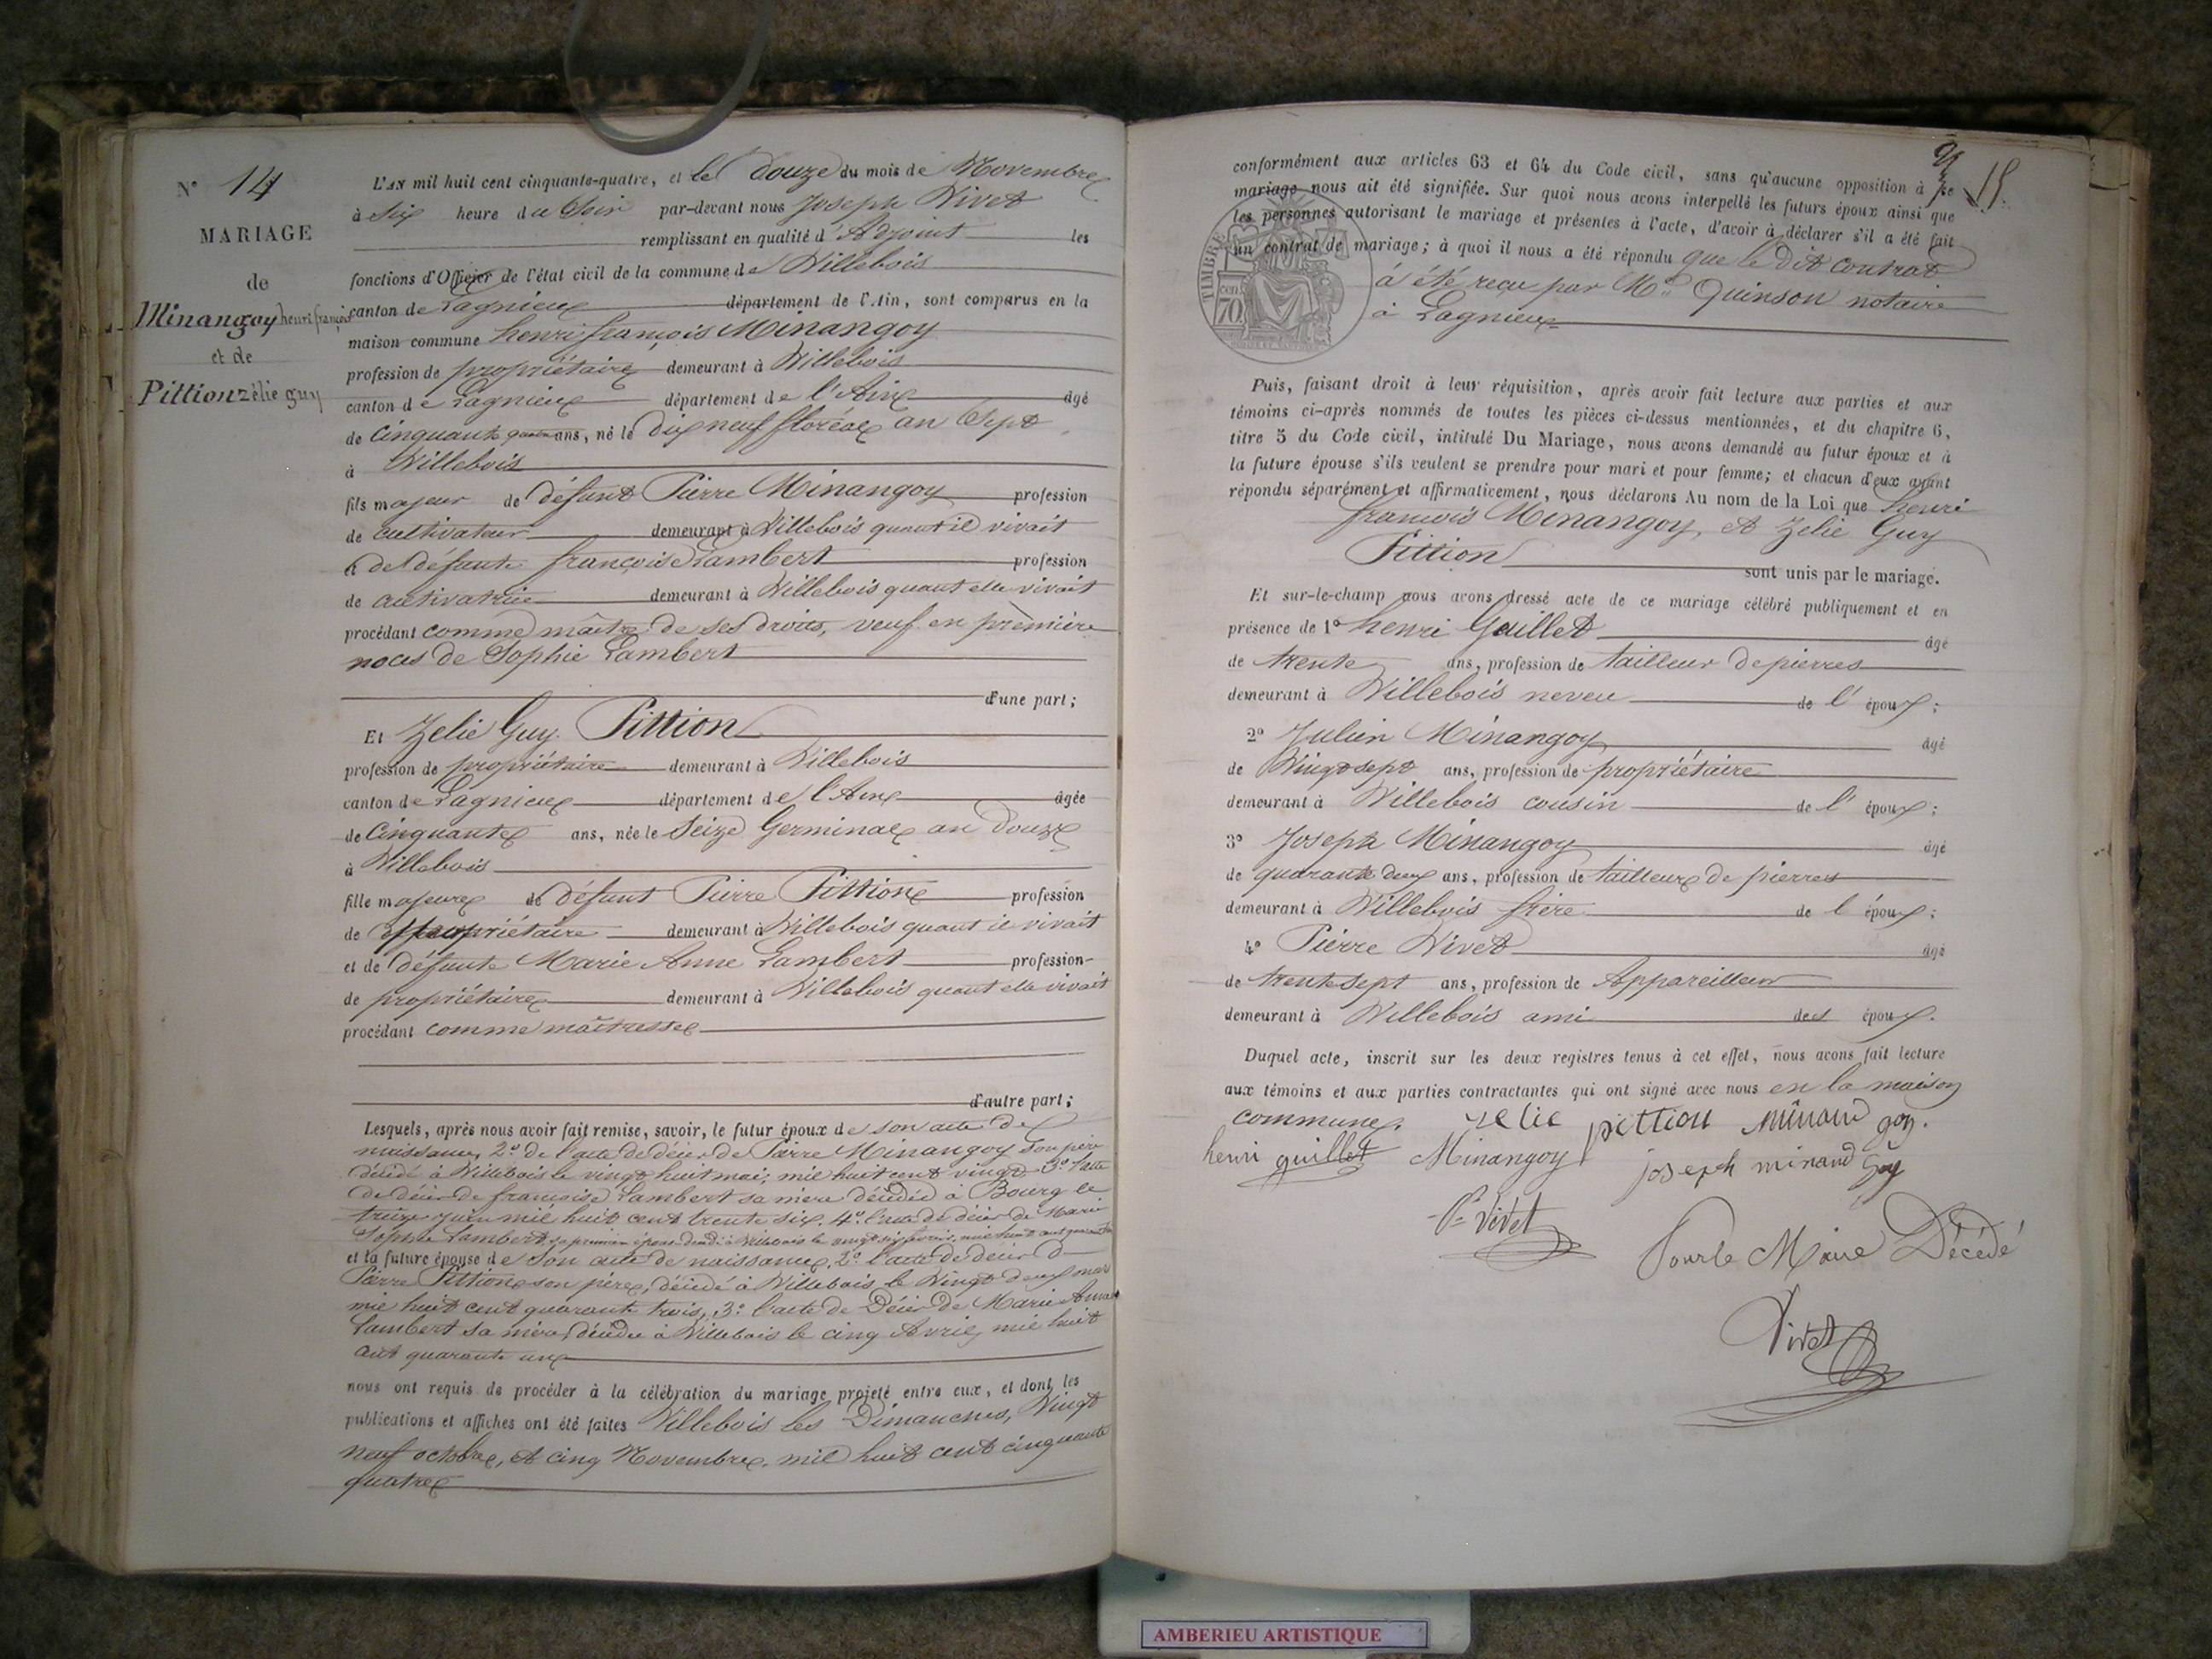 N° 14
MARIAGE
de
Minangoy henri françois
et de
Pittion zélie guy
L'AN mil huit cent cinquante-quatre, et le douze du mois de Novembre
à Six heure du Soir par-devant nous Joseph Vivet
remplissant en qualité d'Adjoint les
fonctions d'Officier de l'état civil de la commune de Villebois
canton de Lagnieux département de l'Ain, sont comparus en la
maison commune henri françois Minangoy
profession de propriétaire demeurant à Villebois
canton de Lagnieux département de l'Ain âgé
de Cinquante quatre ans, né le dix neuf floréal an Sept
à Villebois
fils majeur de défunt Pierre Minangoy profession
de cultivateur demeurant à Villebois quant il vivait
& de défunte françoise Lambert profession
de cultivatrice demeurant à Villebois quant elle vivait
procédant comme maître de ses droits, veuf en première
noces de Sophie Lambert
d'une part;
Et Zelie Guy Pittion
profession de propriétaire demeurant à Villebois
canton de Lagnieux département de l'Ain âgée
de Cinquante ans, née le Seize Germinal an Douze
à Villebois
fille majeure de défunt Pierre Pittion profession
de propriétaire demeurant à Villebois quant il vivait
et de défunte Marie Anne Lambert profession
de propriétaire demeurant à Villebois quant elle vivait
procédant comme maîtresse
d'autre part;
Lesquels, après nous avoir fait remise, savoir, le futur époux de son acte de
naissance, 2° de l'acte de décès de Pierre Minangoy son père
décédé à Villebois le vingt huit mai, mil huit cent vingt 3° l'acte
de décès de françoise Lambert sa mère décédée à Bourg le
treize juin mil huit cent trente six. 4° l'acte de décès de Marie
Sophie Lambert sa première épouse décédée à Villebois le vingt six février, mil huit cent
et la future épouse de Son acte de naissance, 2° l'acte de décès de
Pierre Pittion son père, décédé à Villebois le Vingt deux mars
mil huit cent quarante trois, 3° l'acte de Décès de Marie Anne
Lambert sa mère décédée à Villebois le cinq Avril, mil huit
cent quarante un
nous ont requis de procéder à la célébration du mariage projeté entre eux, et dont les
publications et affiches ont été faites Villebois les Dimanches, Vingt
neuf octobre, et cinq Novembre, mil huit cent cinquante
quatre
15.
conformément aux articles 63 et 64 du Code civil, sans qu'aucune opposition à ce
mariage nous ait été signifiée. Sur quoi nous avons interpellé les futurs époux ainsi que
les personnes autorisant le mariage et présentes à l'acte, d'avoir à déclarer s'il a été fait
un contrat de mariage; à quoi il nous a été répondu que le dit contrat
à été reçu par Me Quinson notaire
à Lagnieux
TIMBRE
70
Puis, faisant droit à leur réquisition, après avoir fait lecture aux parties et aux
témoins ci-après nommés de toutes les pièces ci-dessus mentionnées, et du chapitre 6,
titre 5 du Code civil, intitulé Du Mariage, nous avons demandé au futur époux et à
la future épouse s'ils veulent se prendre pour mari et pour femme; et chacun d'eux ayant
répondu séparément et affirmativement, nous déclarons Au nom de la Loi que henri
francois Minangoy, et Zelie Guy
Pittion
sont unis par le mariage.
Et sur-le-champ nous avons dressé acte de ce mariage célébré publiquement et en
présence de 1° henri Guillet âgé
de trente ans, profession de tailleur de pierres
demeurant à Villebois neveu de l'époux;
2° Julien Minangoy âgé
de Vingt sept ans, profession de propriétaire
demeurant à Villebois cousin de l'époux;
3° Joseph Minangoy âgé
de quarante deux ans, profession de tailleur de pierres
demeurant à Villebois frère de l époux;
4° Pierre Vivet âgé
de trente sept ans, profession de Appareilleur
demeurant à Villebois ami des époux.
Duquel acte, inscrit sur les deux registres tenus à cet effet, nous avons fait lecture
aux témoins et aux parties contractantes qui ont signé avec nous en la maison
commune. zelie pittion Minand goy.
henri guillet Minangoy joseph minand Goy
P. Vivet
Pour le Maire Décédé
Vivet
AMBERIEU ARTISTIQUE